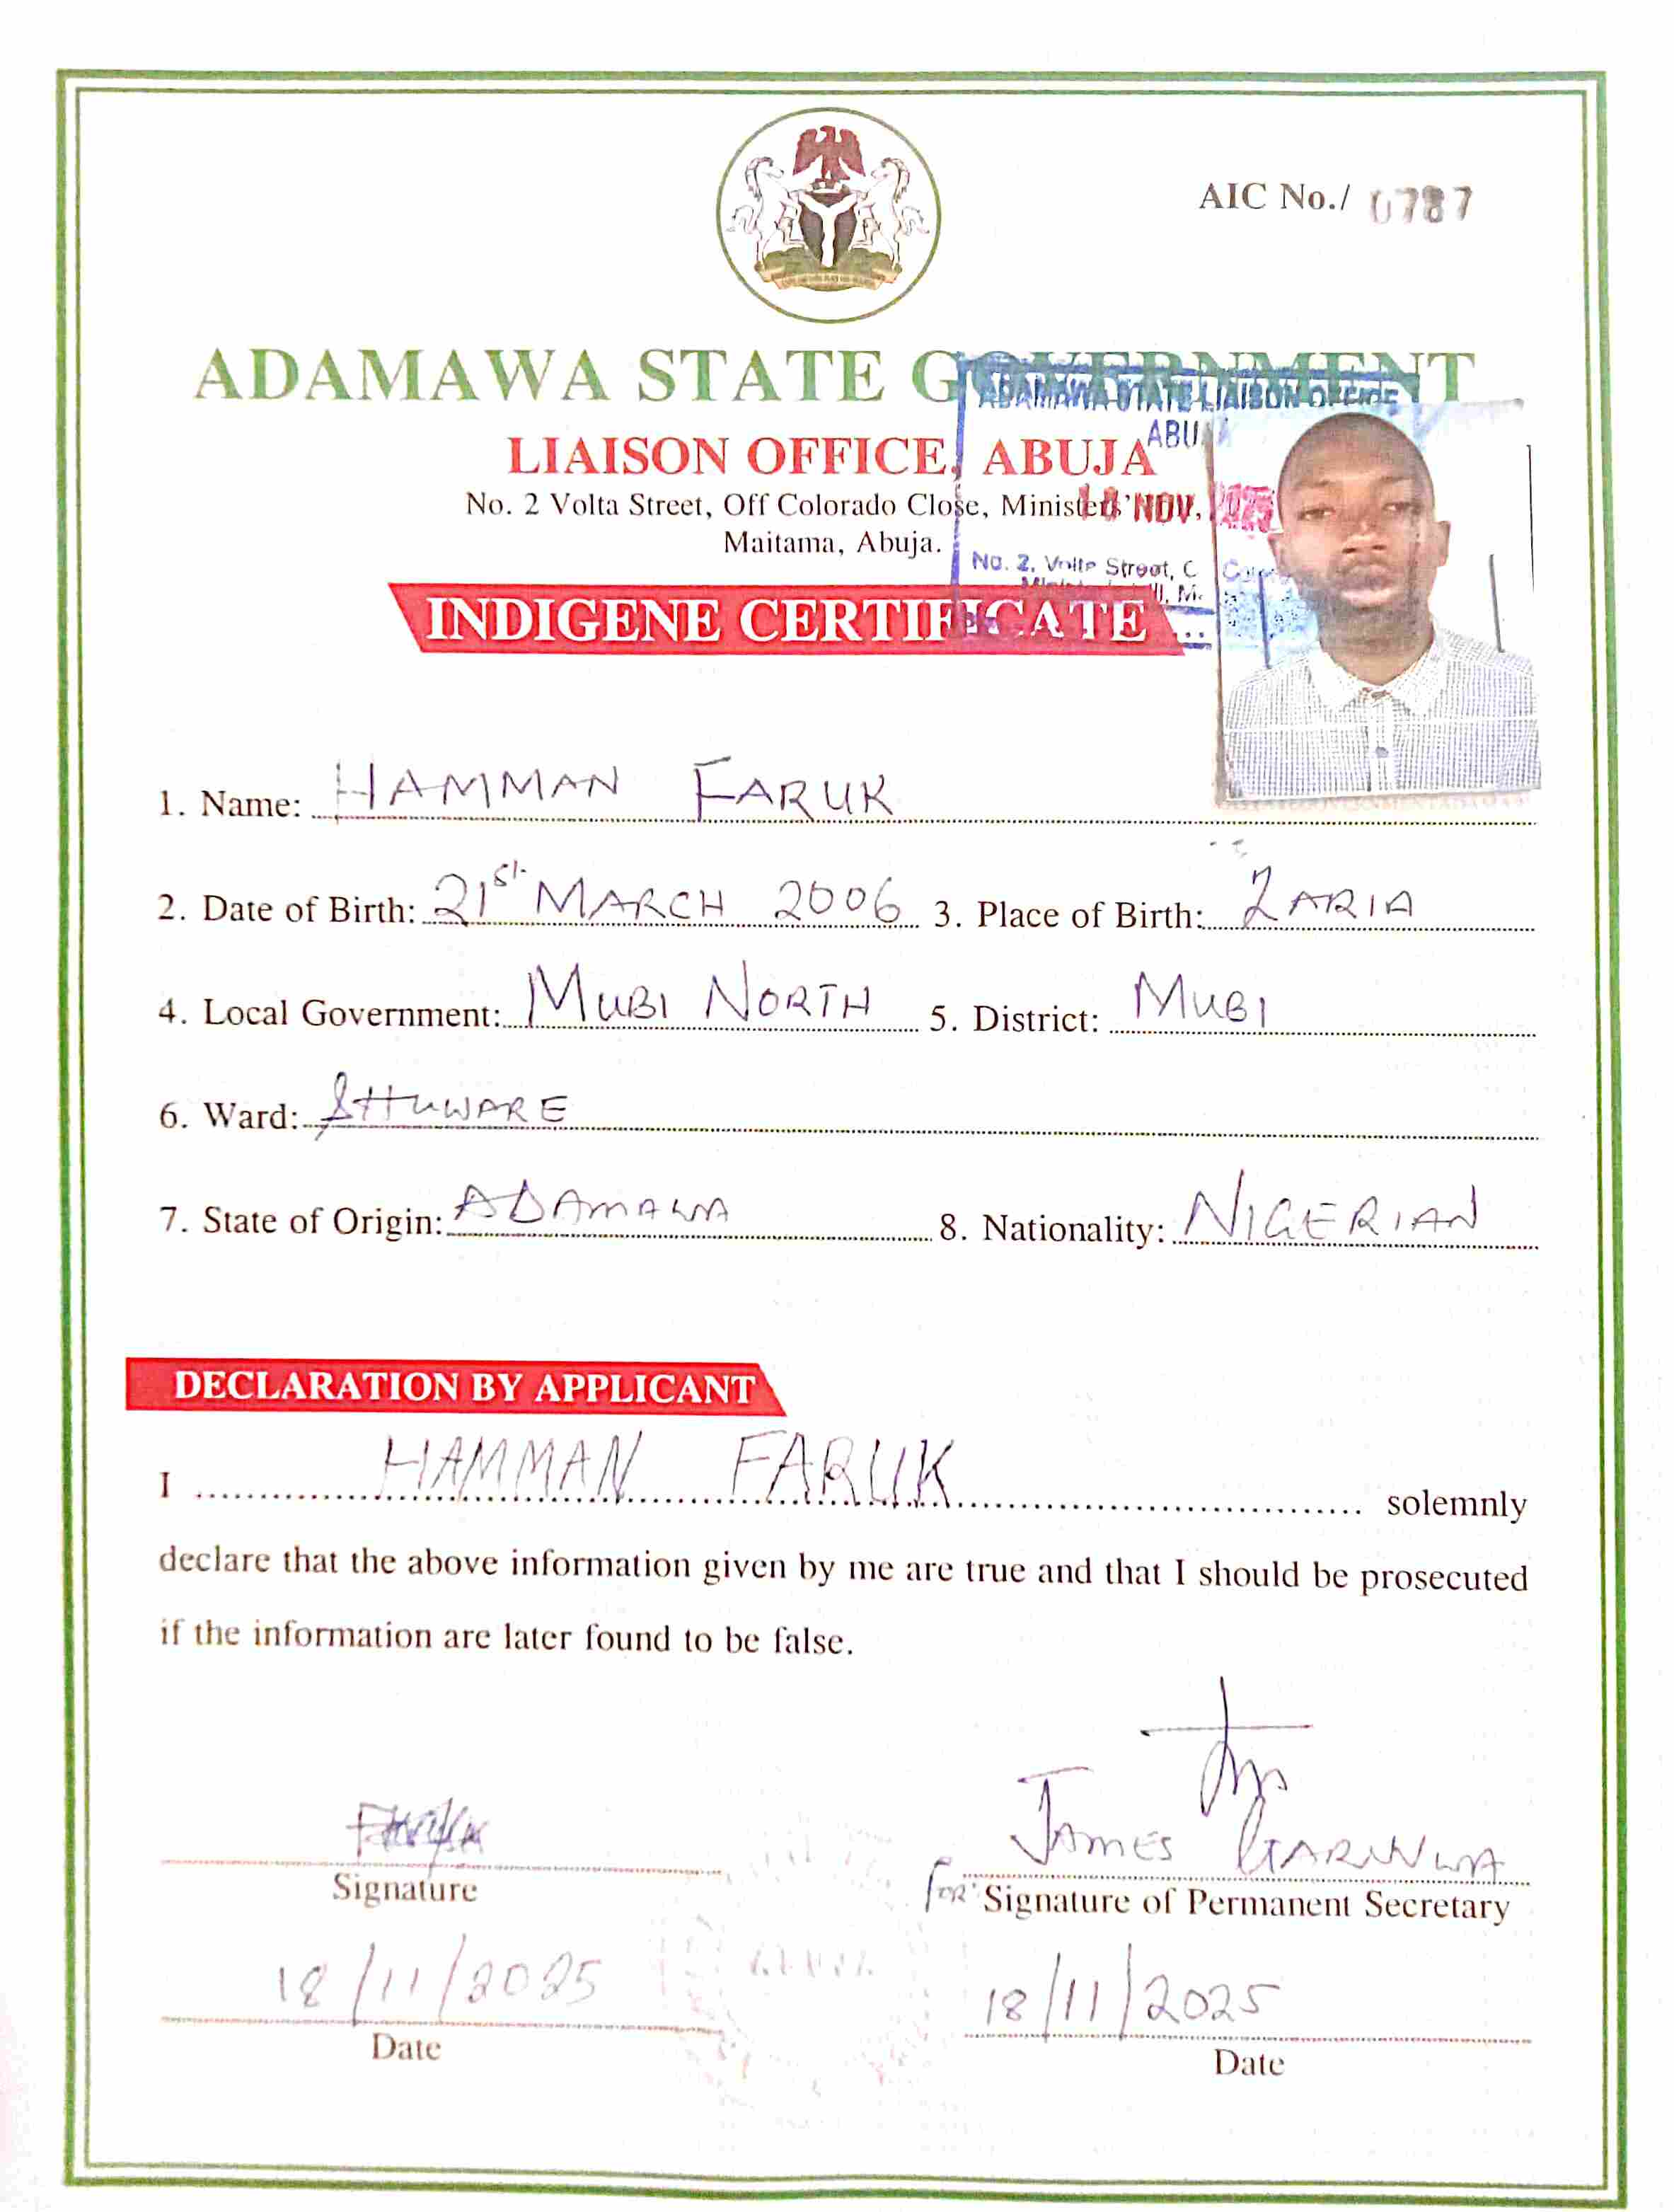 AIC No./ 0787
ADAMAWA STATE GOVERNMENT
ADAMAWA STATE LIAISON OFFICE
LIAISON OFFICE, ABUJA
ABU
No. 2 Volta Street, Off Colorado Close, Ministers'
18 NOV, 2025
Maitama, Abuja.
No. 2, Volta Street, C
INDIGENE CERTIFICATE
1. Name: HAMMAN FARUK
2. Date of Birth: 21st MARCH 2006 3. Place of Birth: ZARIA
4. Local Government: MUBI NORTH 5. District: MUBI
6. Ward: SHUWARE
7. State of Origin: ADAMAWA 8. Nationality: NIGERIAN
DECLARATION BY APPLICANT
I HAMMAN FARUK solemnly
declare that the above information given by me are true and that I should be prosecuted
if the information are later found to be false.
JAMES
Signature For Signature of Permanent Secretary
18/11/2025 18/11/2025
Date Date